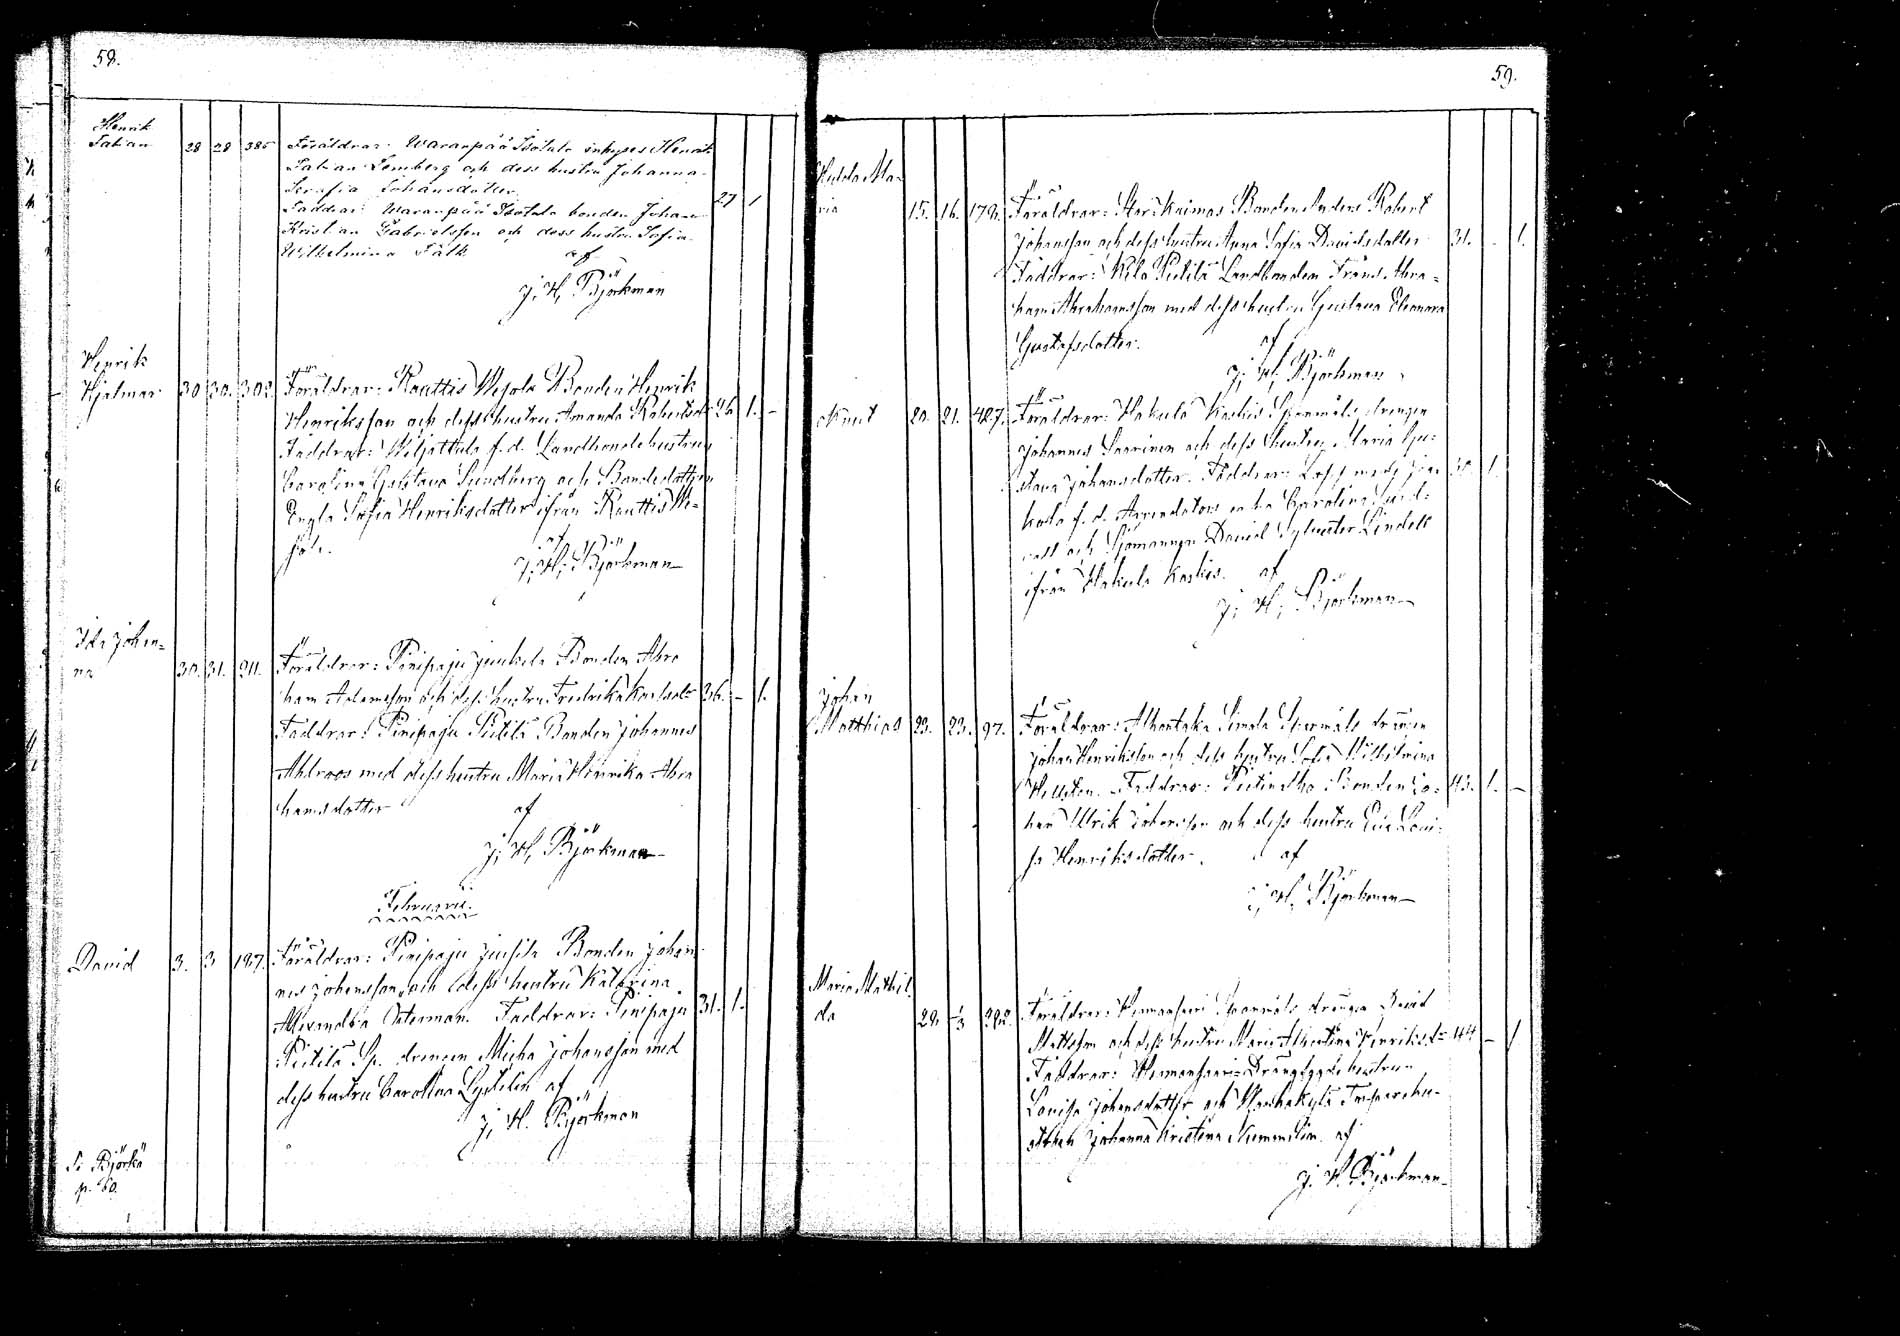 58.
Henrik
Fabian 28 28 385 Föräldrar: Waranpää Isotalo inhyses Henrik
Fabian Lemberg och dess hustru Johanna
Serafia Johansdotter
Faddrar: Waranpää Isotalo bonden Johan 27 1
Kristian Gabrielsson och dess hustru Sofia
Wilhelmina Falk af
J. H. Björkman
Henrik
Hjalmar 30 30. 302. Föräldrar: Rauttis Wejola Bonden Henrik
Henriksson och dess hustru Amanda Robertsdr 26 1. -
Faddrar: Wiljattula f. d. Landbondehustrun
Carolina Gustava Sundberg och Bondedottren
Engla Sofia Henriksdotter ifrån Rauttis We-
jola. af
J. H. Björkman
Ida Johan-
na 30. 31. 211. Föräldrar: Pinipaju Juukela Bonden Abra
ham Adamsson och dess hustru Fredrika Karlsdr 36. - 1.
Faddrar: Pinipaju Pietilä Bonden Johannes
Ahlroos med dess hustru Maria Henrika Abra
hamsdotter af
J. H. Björkman
Februarii.
David 3. 3 197. Föräldrar: Pinipaju Jussila Bonden Johan-
nes Johansson och dess hustru Katarina
Alexandra Österman. Faddrar: Pinipaju 31. 1.
Pietilä Sp. drengen Micha Johansson med
dess hustru Carolina af
J. H. Björkman
S: Björkö
p. 60.
59.
Hulda Ma-
ria 15. 16. 172. Föräldrar: Bonden Anders Robert
Johansson och dess hustru Anna Sofia Davidsdotter 31. - 1.
Faddrar: Pietilä Landbonden Frans Abra-
ham Abrahamsson med dess hustru Gustava Eleonora
Gustafsdotter. af
J. H. Björkman
Knut 20. 21. 427. Föräldrar: Hakula Kaskis Spanmåls drengen
Johannes Saarinen och dess hustru Maria Gu-
stava Johansdotter. Faddrar: 30 1.
kola f. d. Arrendators enka Carolina
och Sjömannen David Sylvester Lindell
ifrån Hakula Kaskis. af
J. H. Björkman
Johan
Matthias 23. 23. 97. Föräldrar: Alhontaka Simola Spanmåls drengen
Johan Henriksson och dess hustru Sofia Wilhelmina
Hellsten. Faddrar: Bonden Jo- 43. 1. -
han Ulrik Johansson och dess hustru Eva Loui-
sa Henriksdotter. af
J. H. Björkman
Maria Mathil-
da 29. 1/3 392. Föräldrar: Spanmåls drengen David
Mattsson och dess hustru Maria Albertina Henriksdr 44 - 1
Faddrar: hustrun
Lovisa Johansdotter och
Johanna Kristina af
J. H. Björkman